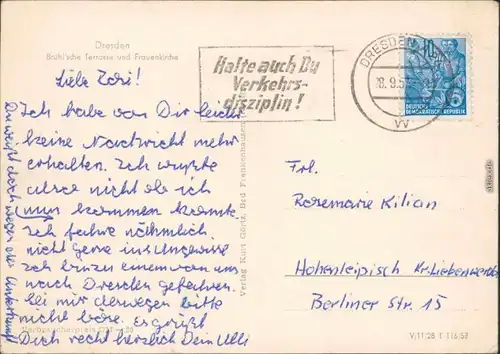 Dresden
Brühl'sche Terrasse und Frauenkirche
Liebe Rosi!
Ich habe von Dir leider
keine Nachricht mehr
erhalten. Ich wußte
also nicht ob ich
nun kommen konnte.
Ich fahre nähmlich
nicht gerne ins Ungewisse
Ich bin zu einem von uns
nach Dresden gefahren.
Sei mir deswegen bitte
nicht böse. Es grüßt
Dich recht herzlich Dein Ulli
Du weißt doch wegen der Unterkunft
Verbraucherpreis
Verlag Kurt Görtz, Bad Frankenhausen
Halte auch Du
Verkehrs-
disziplin!
DRESDEN
18.9.5
vv
10
DEUTSCHE
DEMOKRATISCHE REPUBLIK
Frl.
Rosemarie Kilian
Hohenleipisch Kr. Liebenwerda
Berliner Str. 15
V/11/28 T 116/57